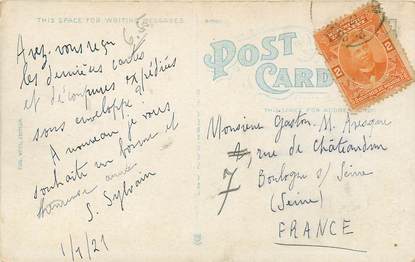 THIS SPACE FOR WRITING MESSAGES
Avez-vous reçu
les dernières cartes
et découpures expédiées
sous enveloppe ?
A nouveau je vous
souhaite un bonne et
heureuse année
S. Sylvain
1/1/21
POST
CARD
THIS SPACE FOR ADDRESS
Monsieur Gaston M.
rue de Châteaudun
7
Boulogne s/ Seine
(Seine)
FRANCE
2 2